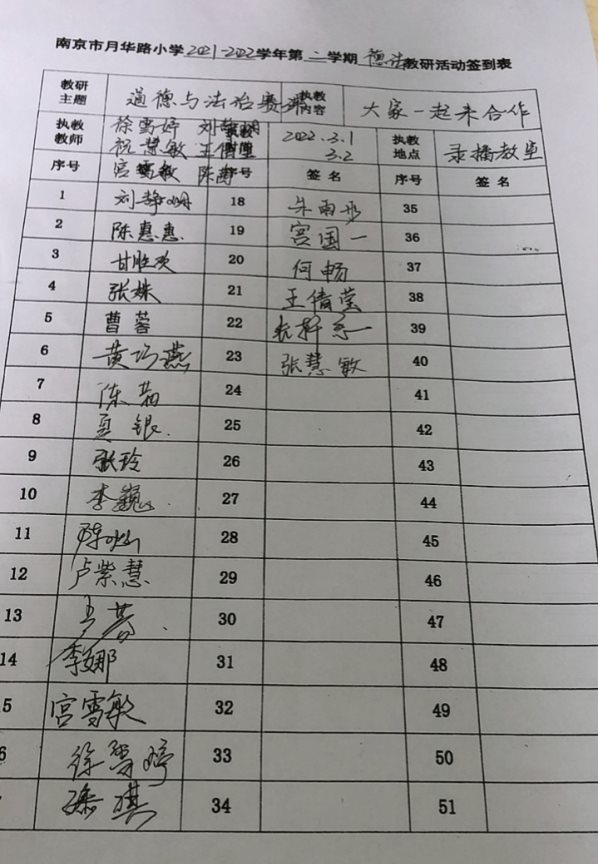 南京市月华路小学2021-2022学年第二学期德法教研活动签到表
教研主题 道德与法治赛课 执教内容 大家一起来合作
执教教师 徐雪婷 刘静明 2022.3.1 执教地点 录播教室
祝慧敏 王倩莹 3.2
宫雪敏 陈茜
序号 序号 签名 序号 签名
1 刘静明 18 朱雨彤 35
2 陈惠惠 19 宫国一 36
3 甘胜欢 20 何畅 37
4 张姝 21 王倩莹 38
5 曹蓉 22 39
6 黄巧燕 23 张慧敏 40
7 陈茜 24 41
8 夏银. 25 42
9 张玲 26 43
10 李巍 27 44
11 陈灿 28 45
12 卢紫慧 29 46
13 30 47
14 李娜 31 48
5 宫雪敏 32 49
6 徐雪婷 33 50
琪 34 51